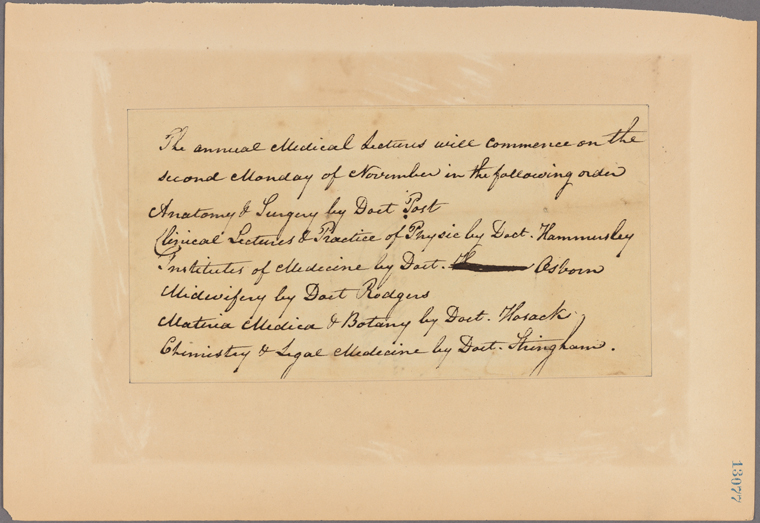 The annual Medical Lectures will commence on the
second Monday of November in the following order
Anatomy & Surgery by Doct Post
Clinical Lectures & Practice of Physic by Doct. Hammersley
Institutes of Medicine by Doct. Osborn
Midwifery by Doct Rodgers
Materia Medica & Botany by Doct. Hosack
Chimistry & Legal Medicine by Doct. Stringham.
13077